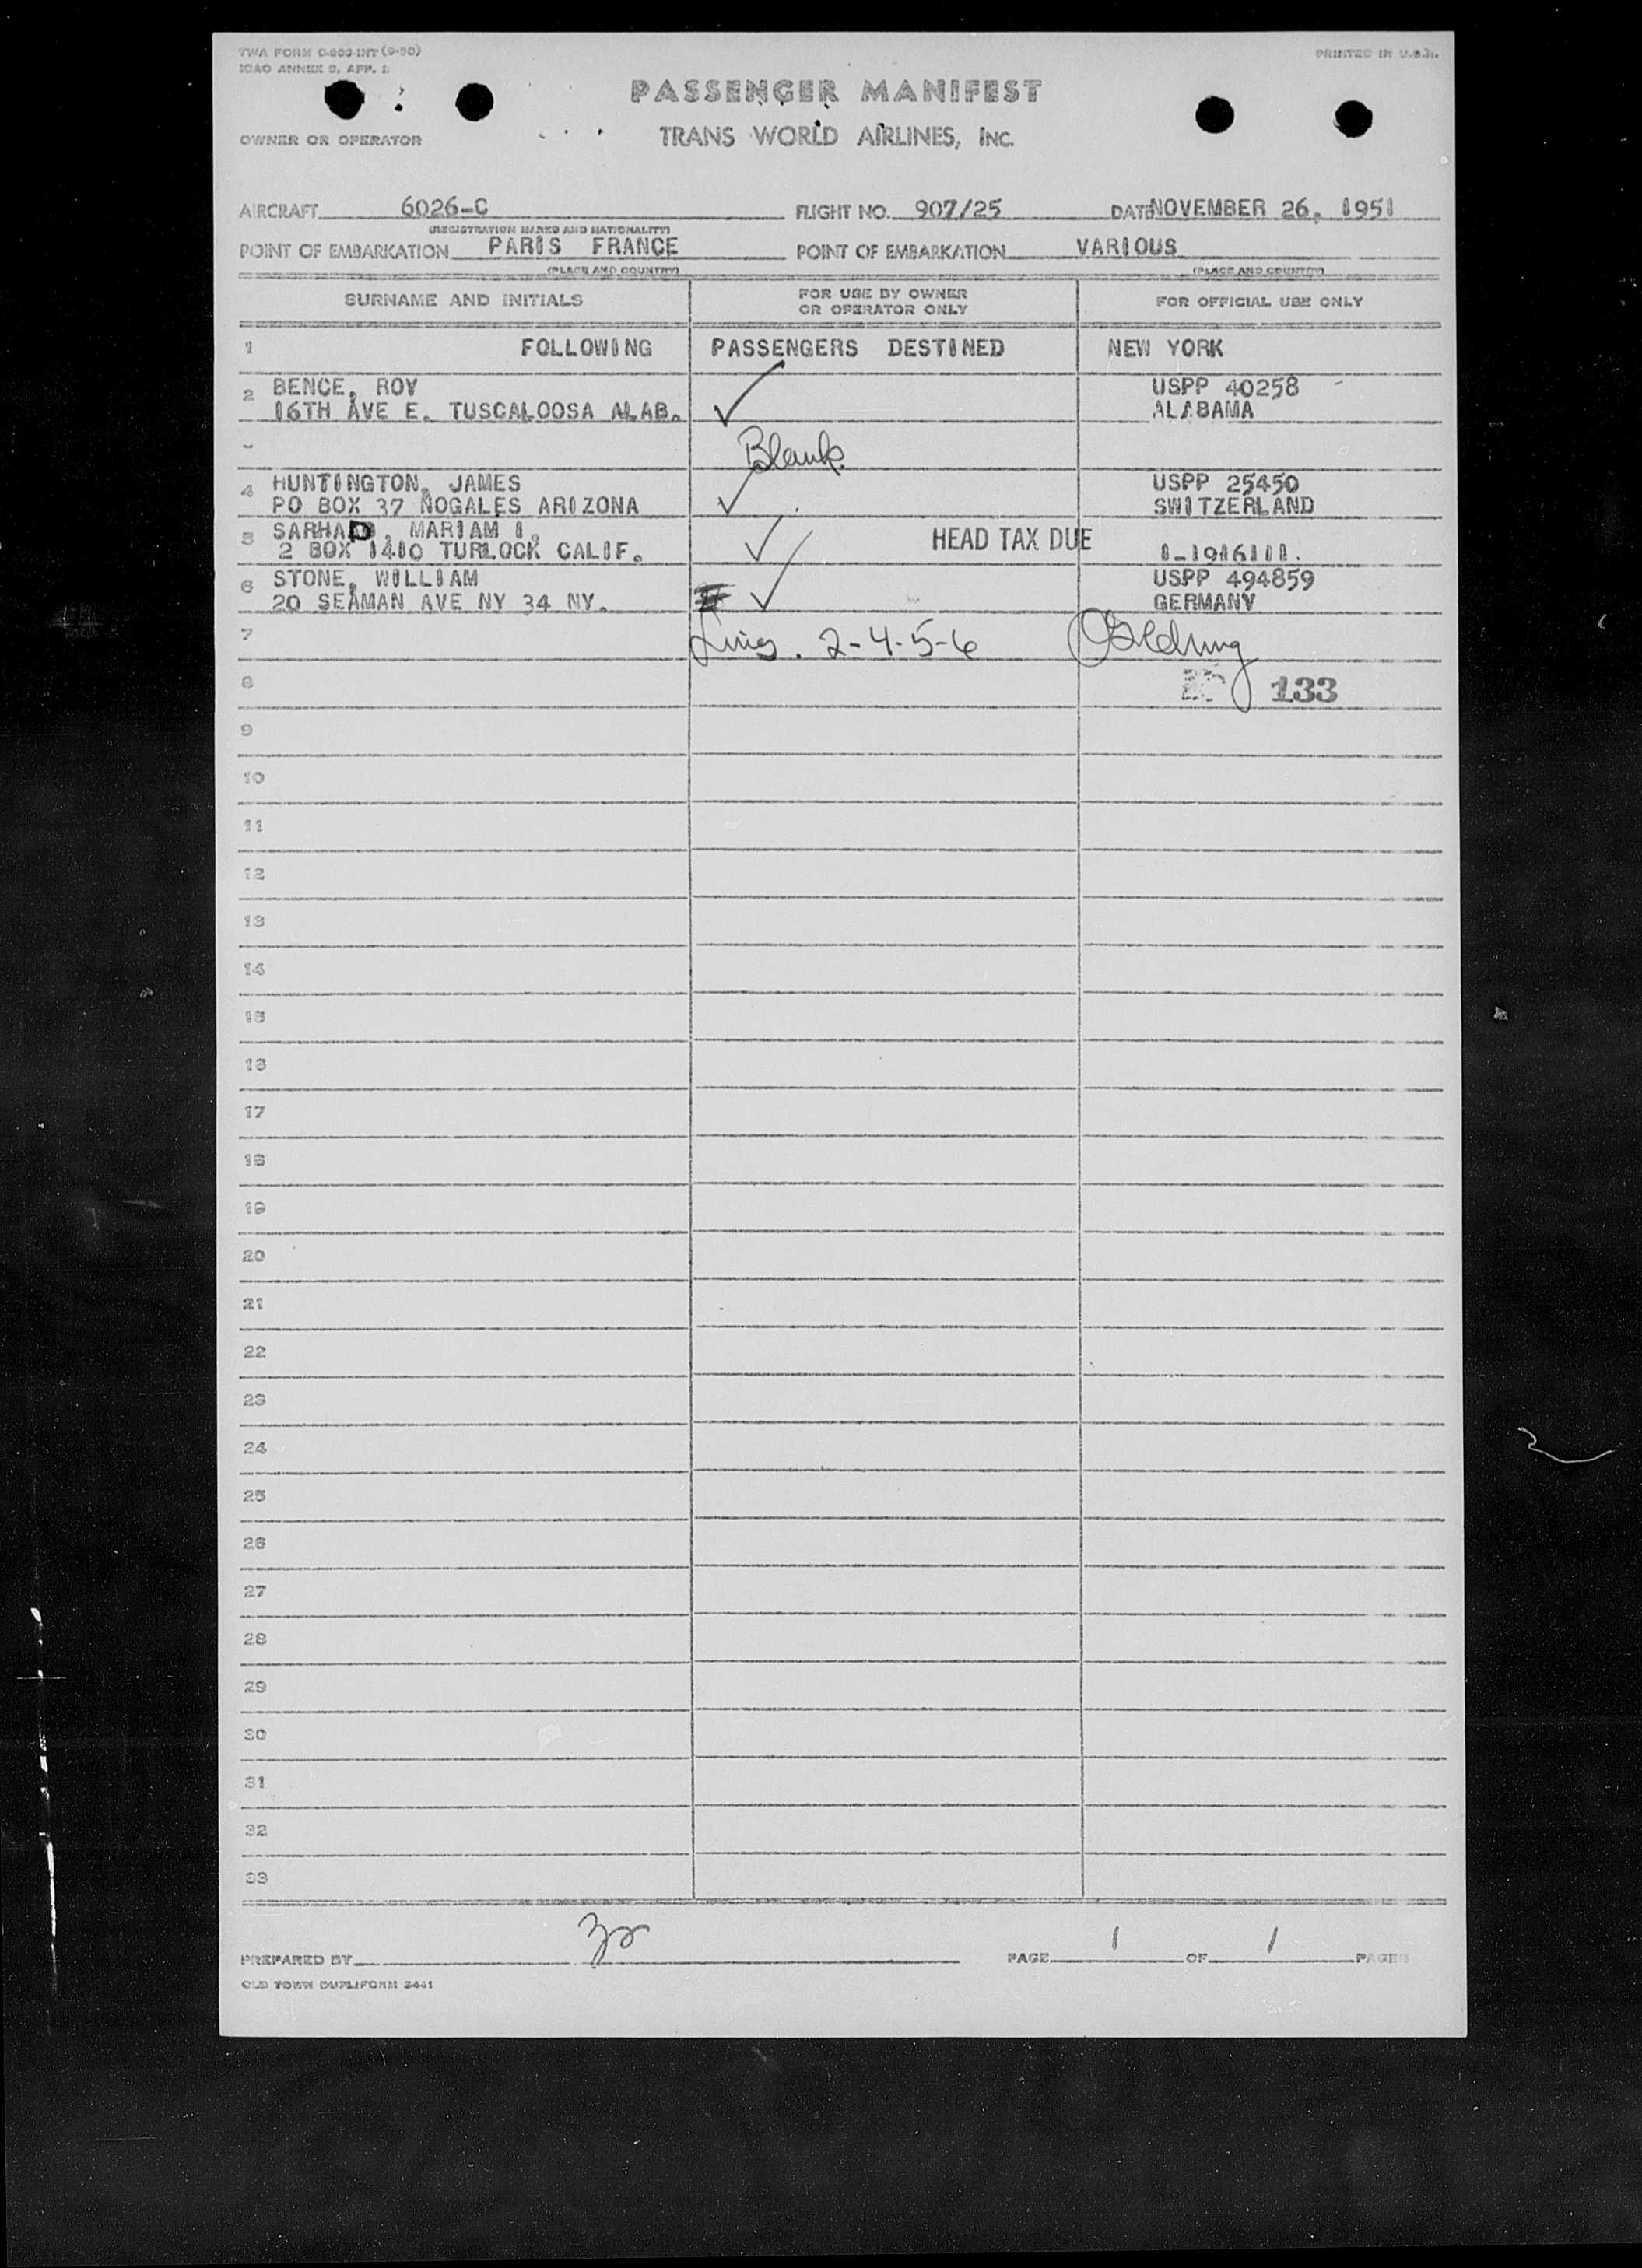 TWA FORM O-800-INT (9-50)
ICAO ANNEX 9, APP. 2
PRINTED IN U.S.A.
PASSENGER MANIFEST
OWNER OR OPERATOR
TRANS WORLD AIRLINES, INC.
AIRCRAFT 6026-C FLIGHT NO. 907/25 DATE NOVEMBER 26, 1951
(REGISTRATION MARKS AND NATIONALITY)
POINT OF EMBARKATION PARIS FRANCE POINT OF EMBARKATION VARIOUS
(PLACE AND COUNTRY) (PLACE AND COUNTRY)
SURNAME AND INITIALS FOR USE BY OWNER OR OPERATOR ONLY FOR OFFICIAL USE ONLY
1 FOLLOWING PASSENGERS DESTINED NEW YORK
2 BENCE, ROY USPP 40258
16TH AVE E. TUSCALOOSA ALAB. ALABAMA
- Blank
4 HUNTINGTON, JAMES USPP 25450
PO BOX 37 NOGALES ARIZONA SWITZERLAND
5 SARHAD, MARIAM I. HEAD TAX DUE
2 BOX 1410 TURLOCK CALIF. I-1916111.
6 STONE, WILLIAM USPP 494859
20 SEAMAN AVE NY 34 NY. GERMANY
7 Lines. 2-4-5-6
8 133
9
10
11
12
13
14
15
16
17
18
19
20
21
22
23
24
25
26
27
28
29
30
31
32
33
PREPARED BY PAGE 1 OF 1 PAGES
OLD TOWN DUPLIFORM 2441